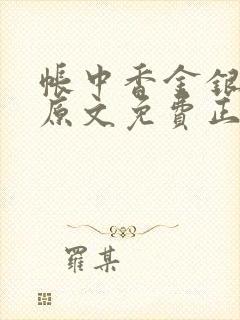 帳中香金銀
原文免費正
羅某